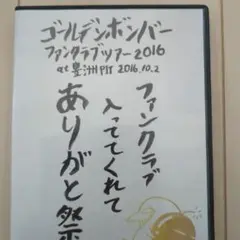 ゴールデンボンバー
ファンクラブツアー2016
at 豊洲PIT 2016.10.2
ファンクラブ
入っててくれて
ありがと祭